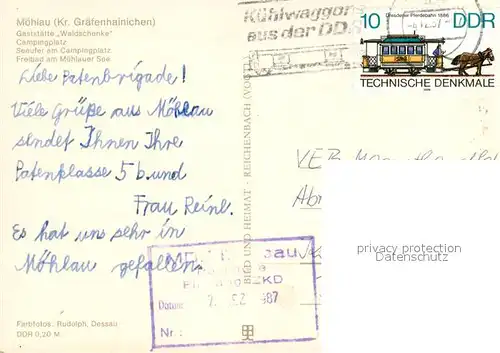 Möhlau (Kr. Gräfenhainichen)
Gaststätte „Waldschenke"
Campingplatz
Seeufer am Campingplatz
Freibad am Mühlauer See
Liebe Patenbrigade!
Viele Grüße aus Möhlau
sendet Ihnen Ihre
Patenklasse 5b und
Frau Reinl.
Es hat uns sehr in
Möhlau gefallen.
Farbfotos: Rudolph, Dessau
DDR 0,20 M
BILD UND HEIMAT · REICHENBACH
Kühlwaggons
aus der DDR
Dresdener Pferdebahn 1886
10 DDR
TECHNISCHE DENKMALE
VEB
privacy protection
Datenschutz
ZKD
Datum
987
Nr.: